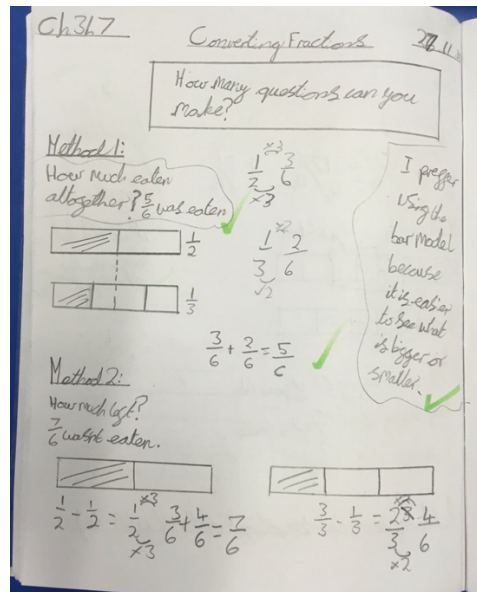 Ch3L7
Converting Fractions
27.11
How many questions can you
make?
Method 1:
How much eaten
altogether? 5/6 was eaten
1/2
1/3
×3
1/2 3/6
×3
×2
1/3 2/6
×2
3/6 + 2/6 = 5/6
I preffer
using the
bar model
because
it is easier
to see what
is bigger or
smaller.
Method 2:
How much left?
7/6 wasnt eaten.
1/2 - 1/2 = 1/2 ×3 3/6 + 4/6 = 7/6
×3
3/3 - 1/3 = 2/3 4/6
×2